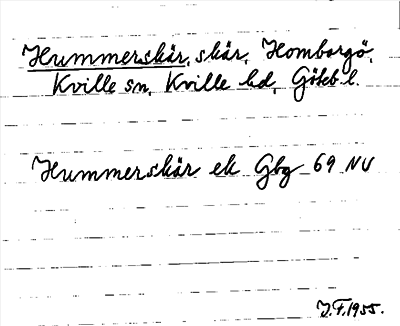 Hummerskär, skär, Homborgö,
Kville sn, Kville hd, Göteb l.
Hummerskär ek Gbg 69 NV
J.F. 1955.